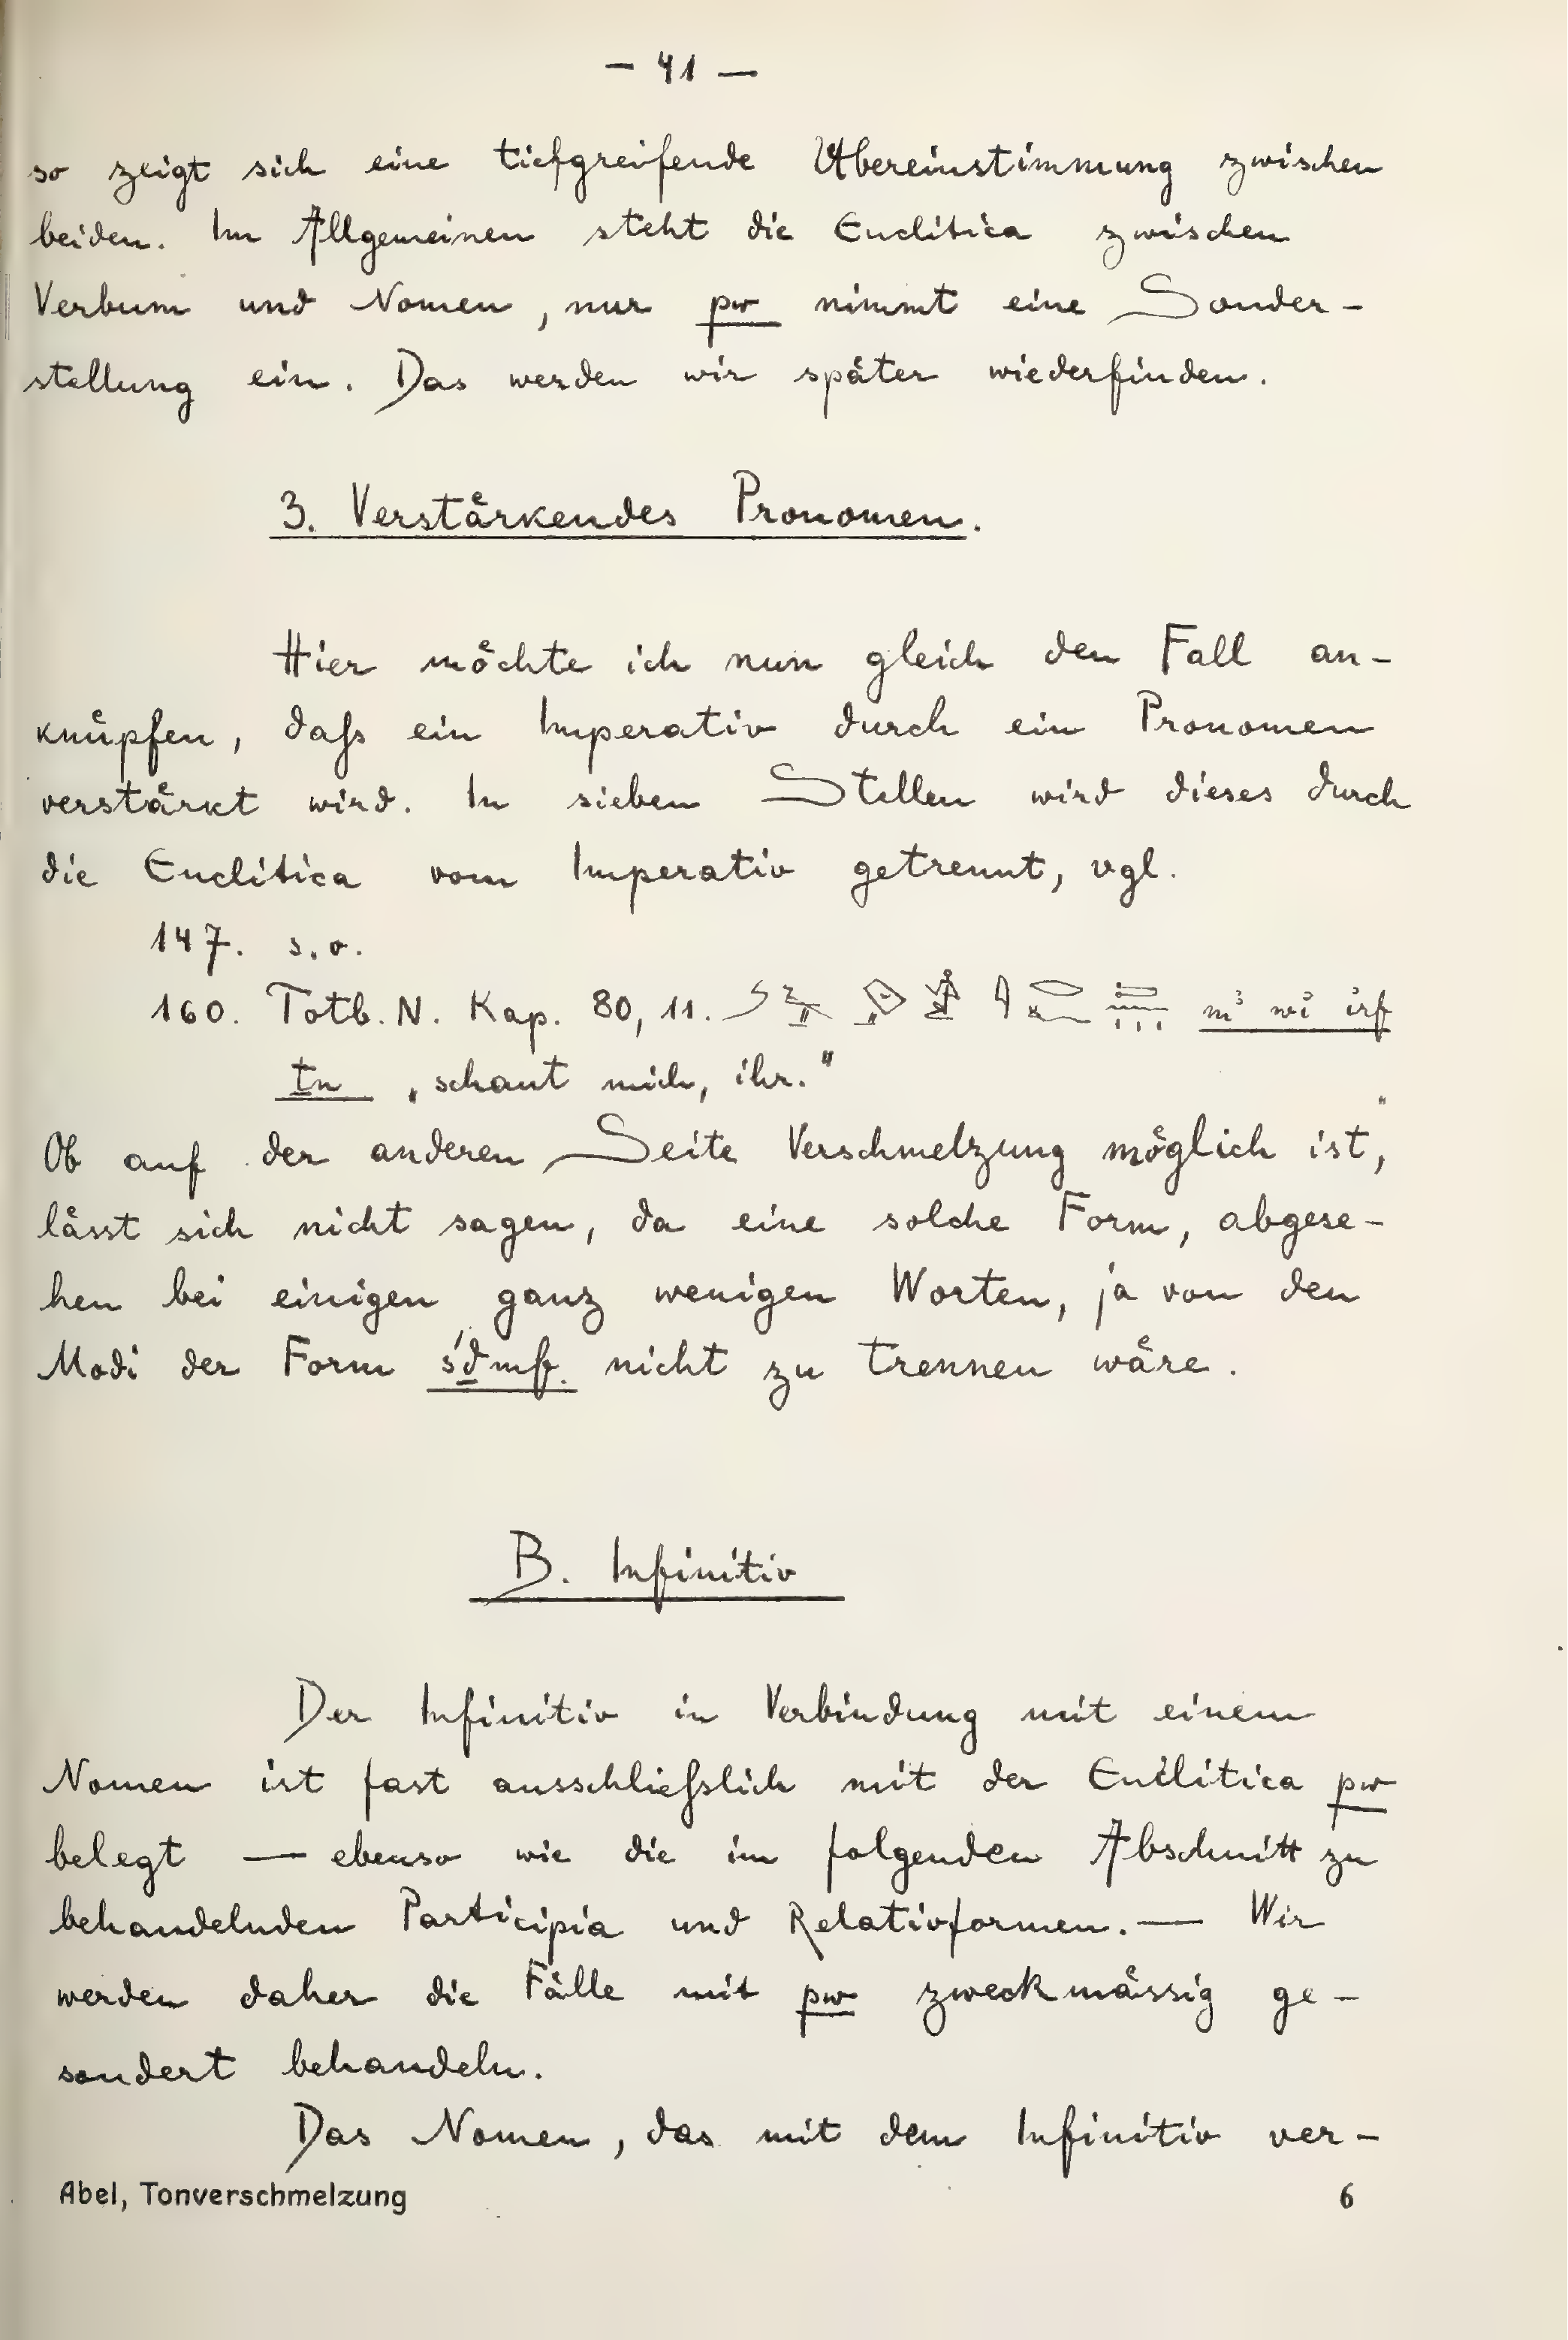 — 41 —
so zeigt sich eine tiefgreifende Übereinstimmung zwischen
beiden. Im Allgemeinen steht die Enclitica zwischen
Verbum und Nomen, nur pw nimmt eine Sonder-
stellung ein. Das werden wir später wiederfinden.
3. Verstärkendes Pronomen.
Hier möchte ich nun gleich den Fall an-
knüpfen, daß ein Imperativ durch ein Pronomen
verstärkt wird. In sieben Stellen wird dieses durch
die Enclitica vom Imperativ getrennt, vgl.
147. s. o.
160. Totb. N. Kap. 80, 11. mꜣ wi҆ i҆rf
ṯn „schaut mich, ihr.“
Ob auf der anderen Seite Verschmelzung möglich ist,
lässt sich nicht sagen, da eine solche Form, abgese-
hen bei einigen ganz wenigen Worten, ja von den
Modi der Form śḏmf. nicht zu trennen wäre.
B. Infinitiv
Der Infinitiv in Verbindung mit einem
Nomen ist fast ausschließlich mit der Enclitica pw
belegt — ebenso wie die im folgenden Abschnitt zu
behandelnden Participia und Relativformen. — Wir
werden daher die Fälle mit pw zweckmässig ge-
sondert behandeln.
Das Nomen, das mit dem Infinitiv ver-
Abel, Tonverschmelzung 6